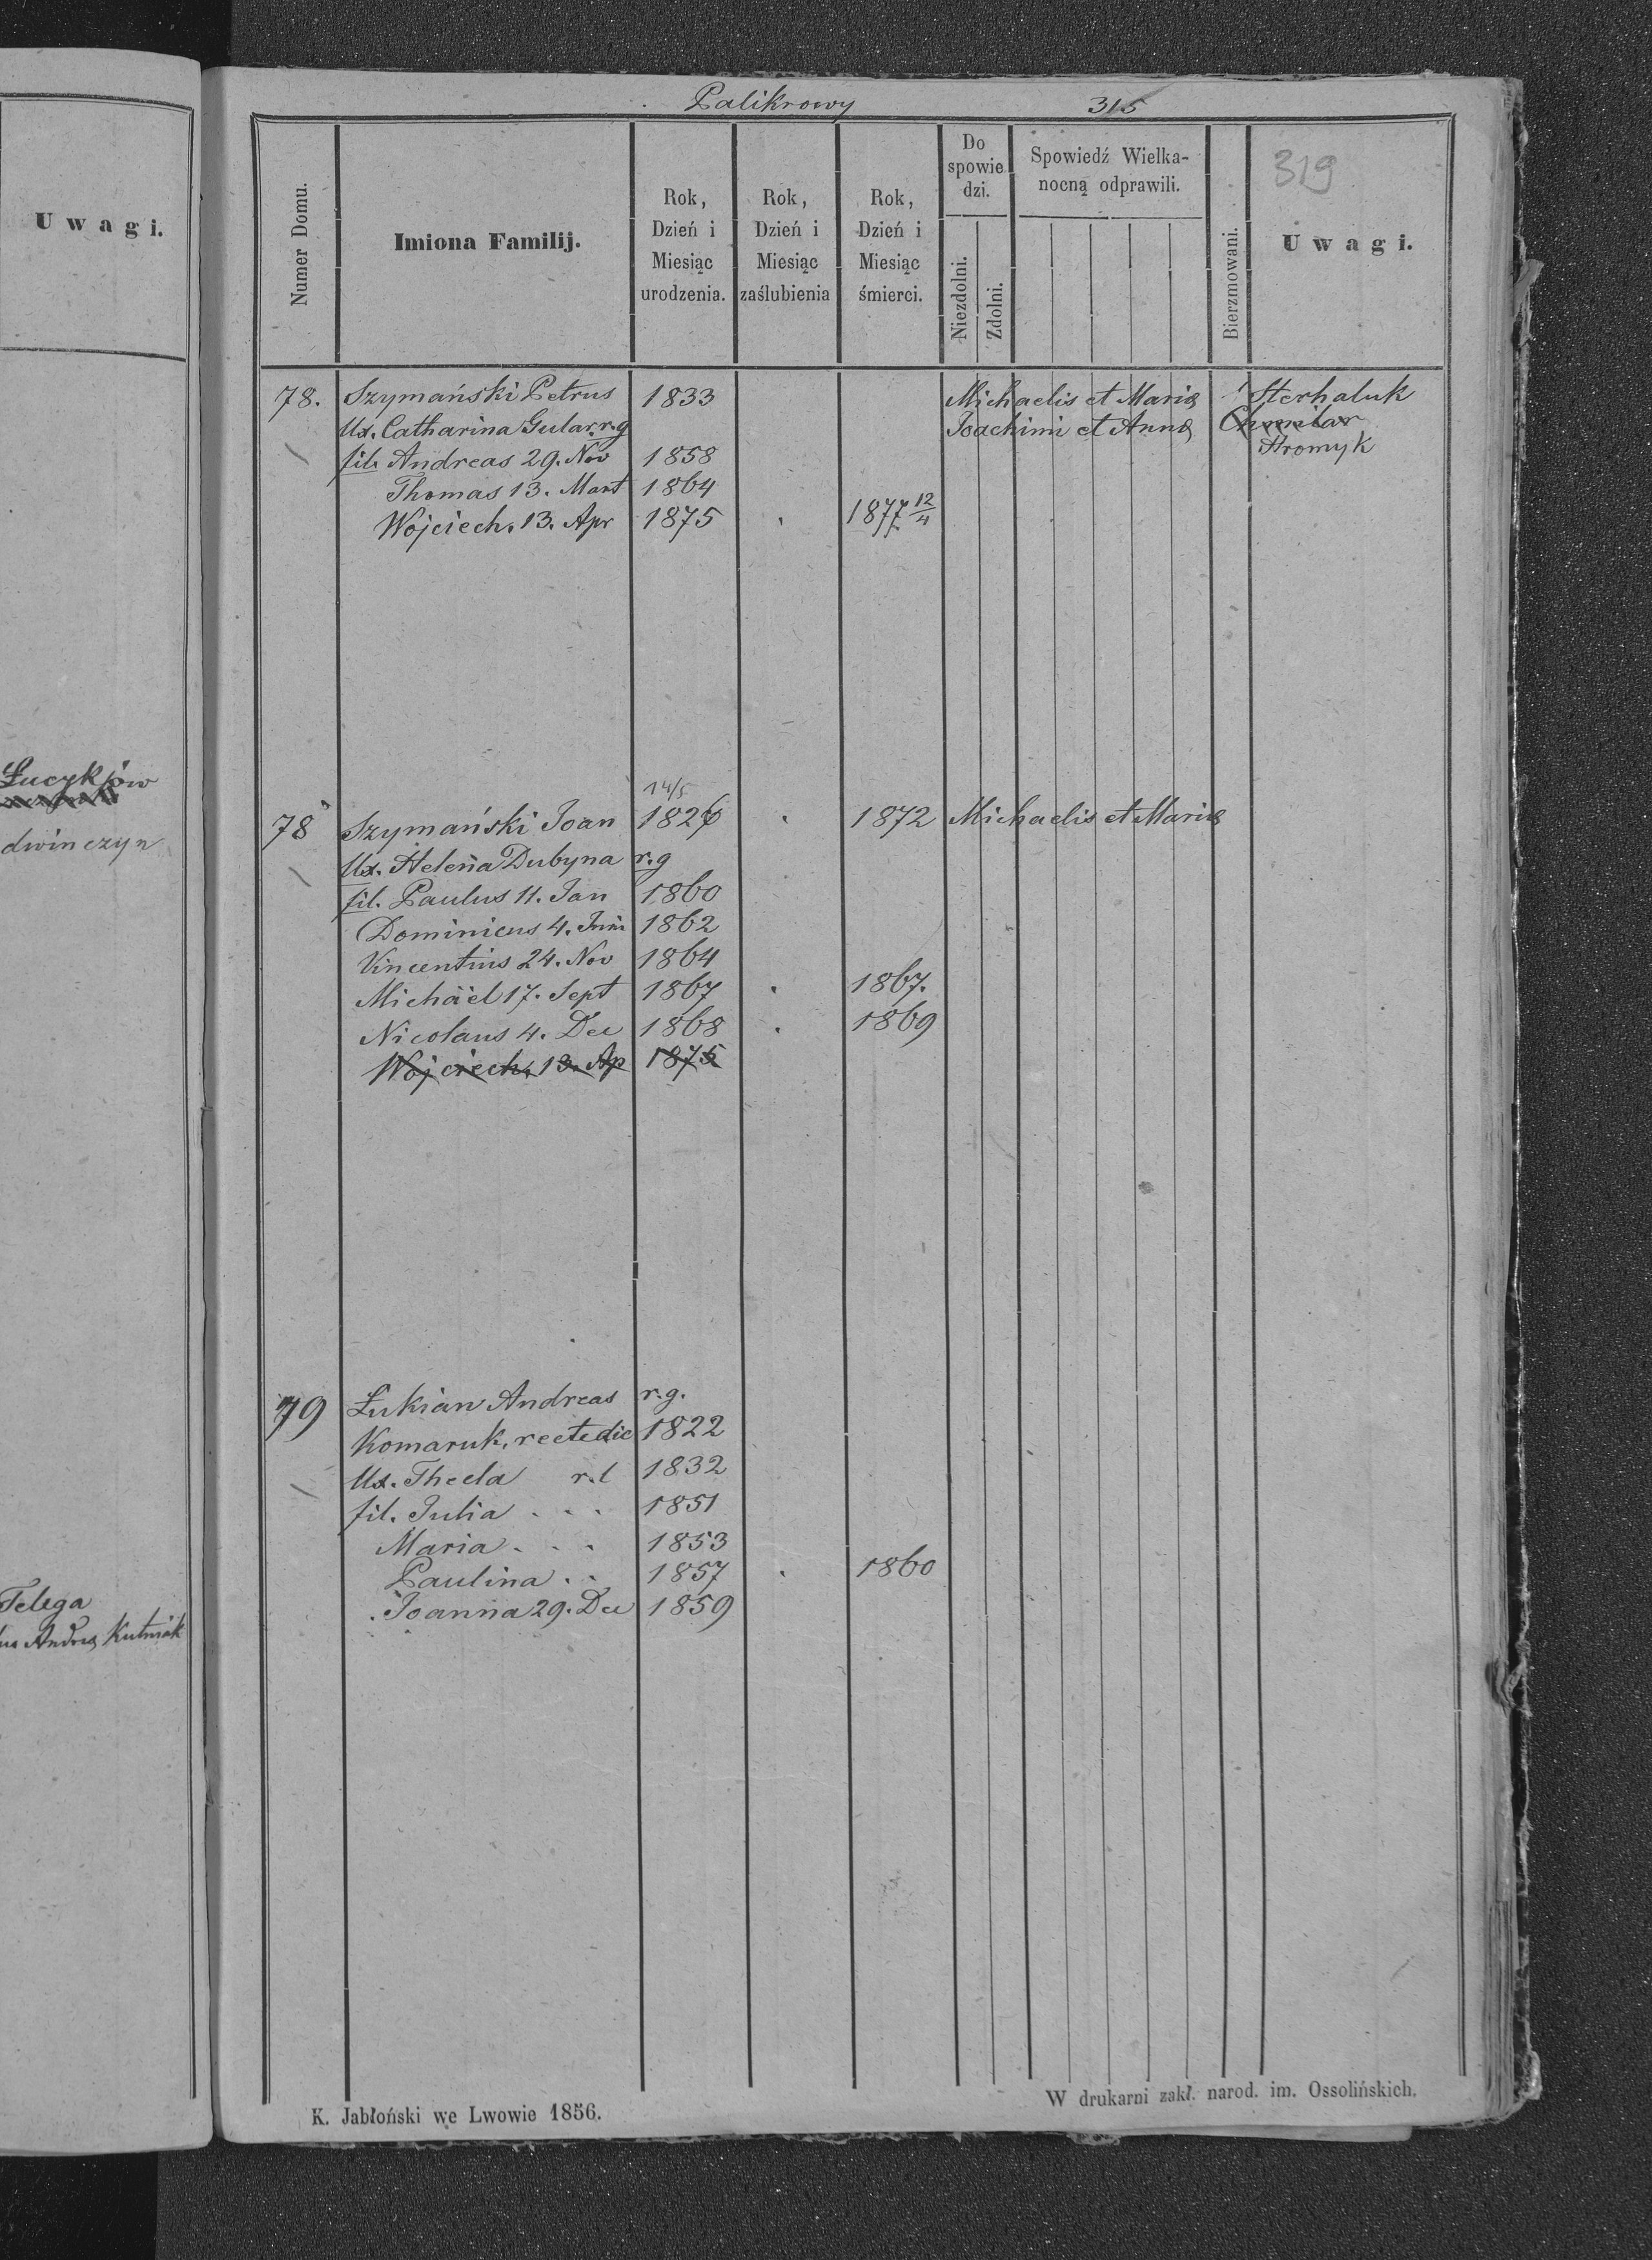 Uwagi.
Łucykjów
dwinczyn
Telega
Kutniak
Palikrowy 315
319
Numer Domu.
Imiona Familij.
Rok, Dzień i Miesiąc urodzenia.
Rok, Dzień i Miesiąc zaślubienia
Rok, Dzień i Miesiąc śmierci.
Do spowiedzi.
Niezdolni.
Zdolni.
Spowiedź Wielkanocną odprawili.
Bierzmowani.
Uwagi.
78. Szymański Petrus 1833 Michaelis et Mariæ Sterhaluk
Ux. Catharina Gular, r.g Joachimi et Annæ Chmilar
Hromyk
fil. Andreas 29. Nov 1858
Thomas 13. Mart 1864
Wojciech. 13. Apr 1875 1877 12/4
14/5
78 Szymański Joan 1826 1872 Michaelis et Mariæ
Ux. Helena Dubyna r.g
fil. Paulus 11. Jan 1860
Dominicus 4. Juni 1862
Vincentius 24. Nov 1864
Michäel 17. Sept 1867 1867.
Nicolaus 4. Dec 1868 1869
Wojciech, 13. Ap 1875
79 Łukian Andreas r.g.
Komaruk, recte dic 1822
Ux. Thecla r.l 1832
fil. Julia . . . 1851
Maria . . . 1853
Paulina . . 1857 1860
Joanna 29. Dec 1859
K. Jabłoński we Lwowie 1856.
W drukarni zakł. narod. im. Ossolińskich.